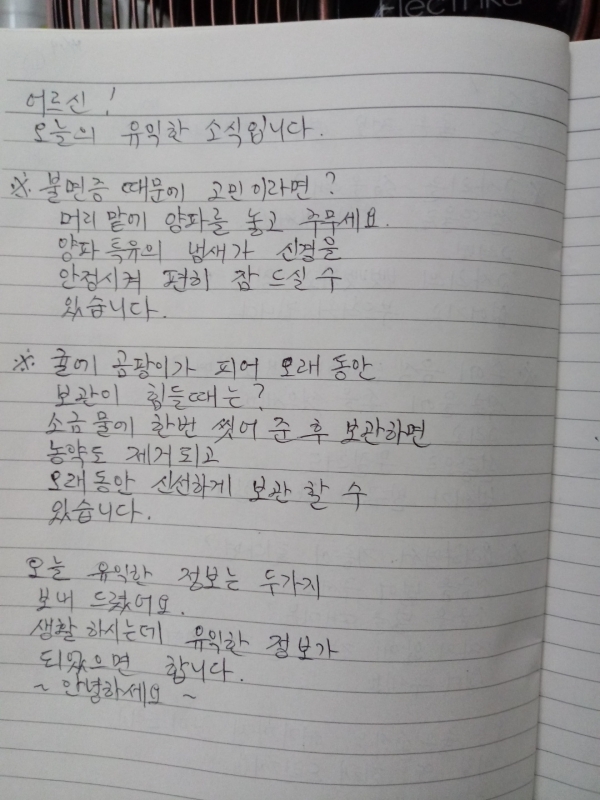 Electrika
어르신!
오늘의 유익한 소식입니다.
※. 불면증 때문에 고민이라면?
머리 맡에 양파를 놓고 주무세요.
양파 특유의 냄새가 신경을
안정시켜 편히 잠 드실 수
있습니다.
※. 귤에 곰팡이가 피어 오래 동안
보관이 힘들때는?
소금 물에 한번 씻어 준 후 보관하면
농약도 제거되고
오래 동안 신선하게 보관 할 수
있습니다.
오늘 유익한 정보는 두가지
보내 드렸어요.
생활 하시는데 유익한 정보가
되었으면 합니다.
~ 안녕하세요 ~